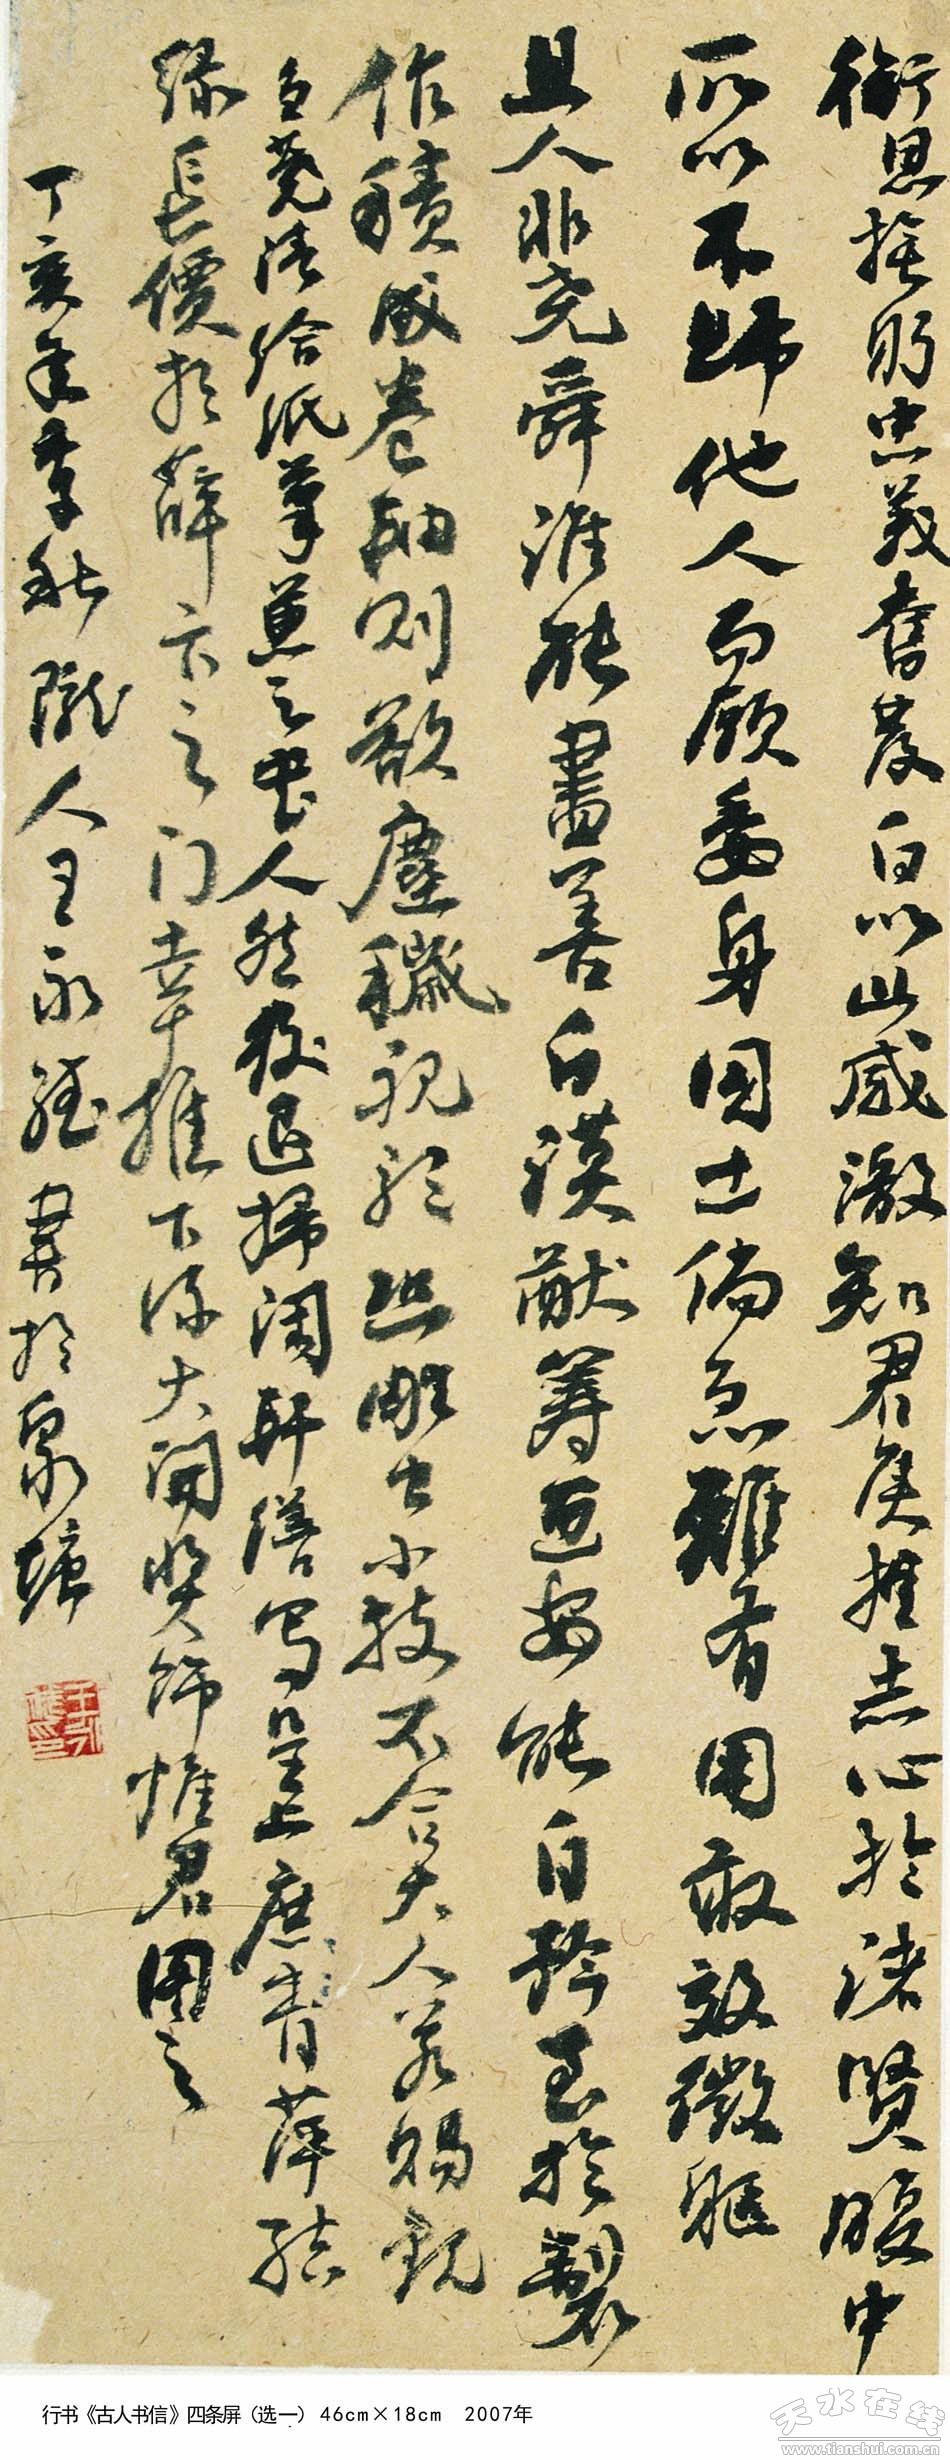 銜恩撫躬忠義奮發白以此感激知君侯推赤心於諸賢腹中
所以不歸他人而願委身国士倘急難有用敢效微軀
且人非尧舜誰能盡善白謨猷籌画安能自矜至於製
作積成卷軸則欲塵穢視聽恐雕虫小技不合大人若賜觀
刍蕘請給紙筆兼之書人然後退掃閑軒繕寫呈上庶青萍結
綠長價於薛卞之门幸推下流大開奖飾惟君图之
丁亥年季秋隴人王永 書於泉
行书《古人书信》四条屏（选一） 46cm×18cm 2007年
天水在线
www.tianshui.com.cn